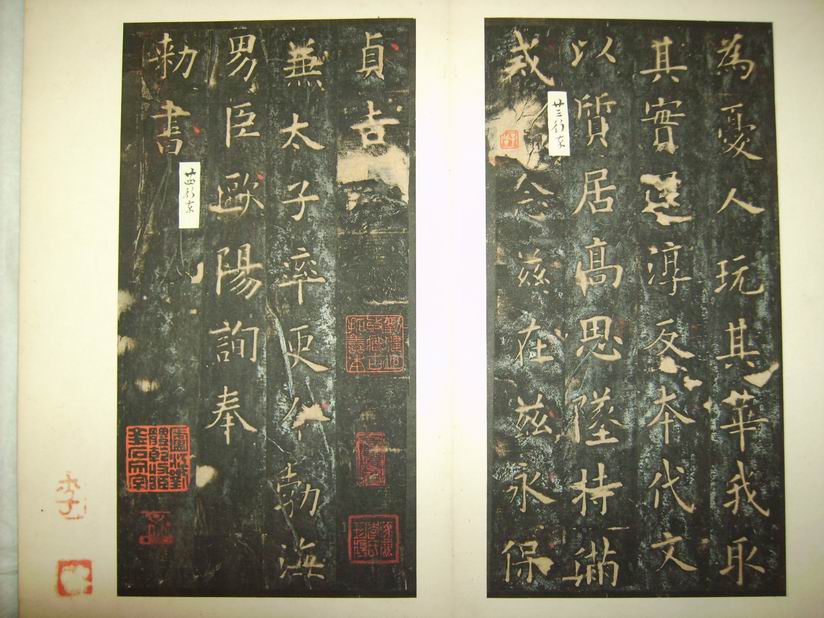 為憂人玩其華我取
其實還淳反本代文
以質居高思墜持滿
戒念茲在茲永保
廿三行末
貞吉
兼太子率更令勃海
男臣歐陽詢奉
勅書
廿四行末
李